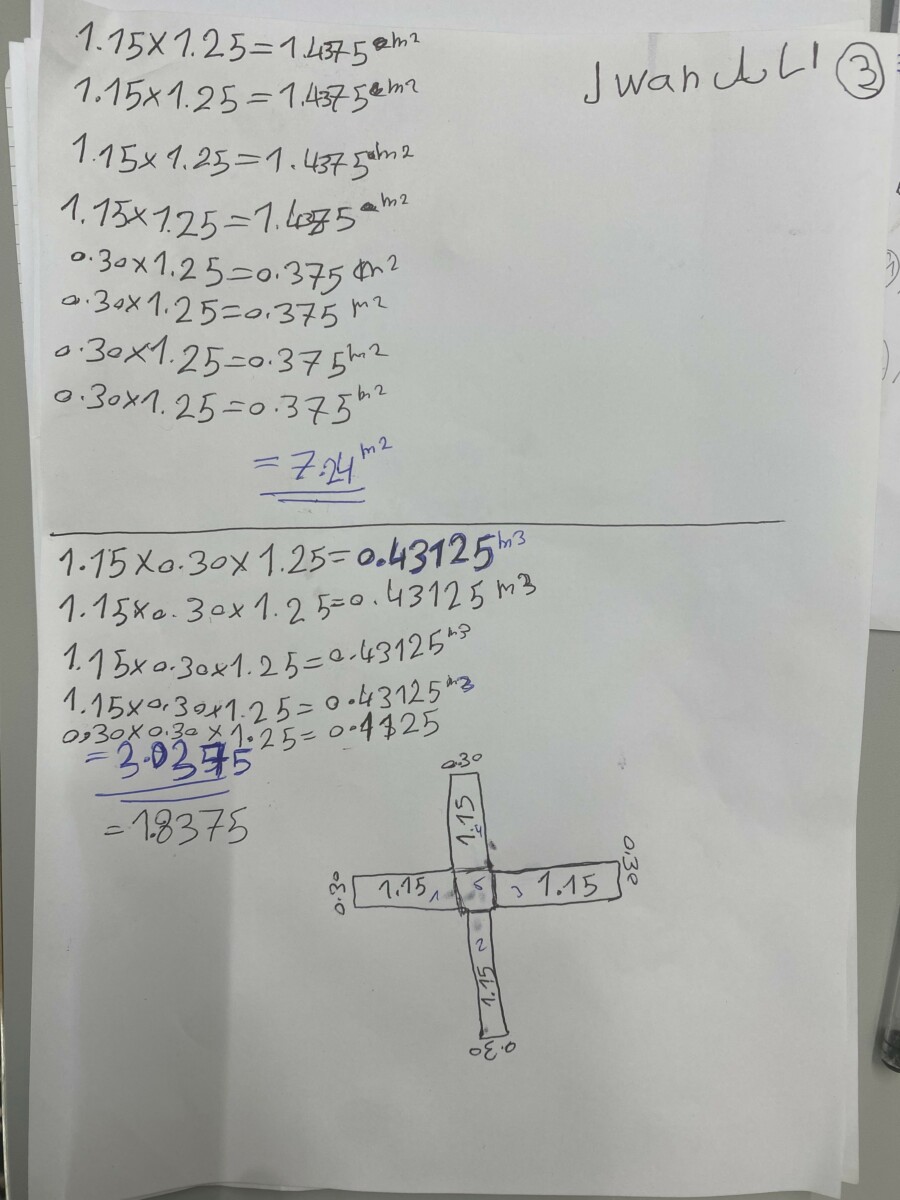 1.15×1.25=1.4375 m²
Jwan ③
1.15×1.25=1.4375 m²
1.15×1.25=1.4375 m²
1.15×1.25=1.4375 m²
0.30×1.25=0.375 m²
0.30×1.25=0.375 m²
0.30×1.25=0.375 m²
0.30×1.25=0.375 m²
=7.24 m²
1.15×0.30×1.25=0.43125 m3
1.15×0.30×1.25=0.43125 m3
1.15×0.30×1.25=0.43125 m3
1.15×0.30×1.25=0.43125 m3
0,30×0.30×1.25=0.1125
=1.8375
0.30
1.15
0.30
1.15 1
3 1.15
0.30
2
1.15
0.30